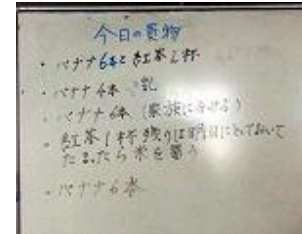 今日の買物
・バナナ6本と紅茶2杯
・バナナ4本 乳
・バナナ6本 (家族に分ける)
・紅茶1杯 残りは明日にとっておいて
たまったら米を買う
・バナナ6本